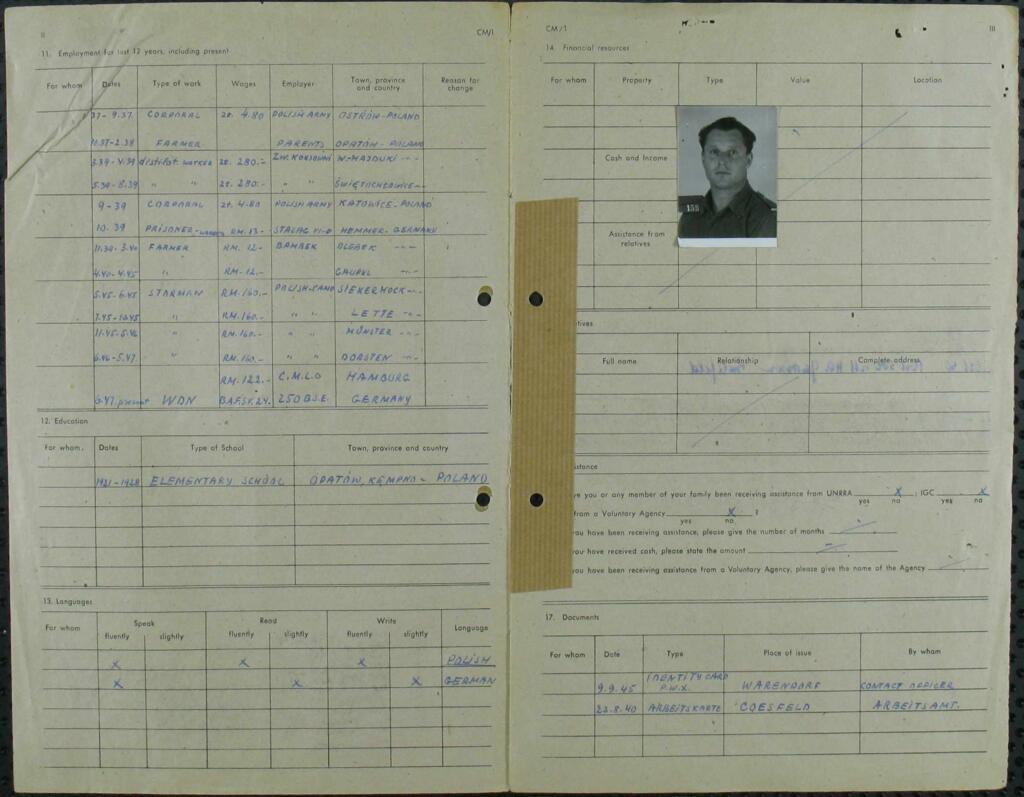 II
CM/1
11. Employment for last 12 years, including present
For whom Dates Type of work Wages Employer Town, province and country Reason for change
37- 9.37. CORPORAL zł. 4.80 POLISH ARMY OSTRÓW-POLAND
11.37-2.39 FARMER PARENTS OPATÓW- POLAND
3.39-4.39 distilat. worker zł. 280.- ZW. KOKSOWNI W-HAJDUKI -"-
5.39-8.39 " " zł. 280.- " " ŚWIĘTOCHŁOWICE-"-
9-39 CORPORAL zł. 4.80 POLISH ARMY KATOWICE-POLAND
10.39 PRISONER- RM. 13- STALAG VI-D HEMMER-GERMANY
11.39-3.40 FARMER RM. 12- BAMBEK -"-
4.40-4.45 " RM-12.- GAUPEL -"-
5.45-6.45 STARMAN RM. 160.- POLISH-CAMP -"-
7.45-10.45 " RM. 160.- " " LETTE -"-
11.45-5.46 RM. 160.- " " MÜNSTER -"-
6.46-5.47. " RM. 160.- " " DORSTEN -"-
RM. 122.- C.M.L.O HAMBURG
6.47. present WDN B.A.F.S.V. 24.- 250 B.S.E. GERMANY
12. Education
For whom. Dates Type of School Town, province and country
1921-1928 ELEMENTARY SCHOOL OPATÓW, KEMPNO - POLAND
13. Languages
For whom Speak Read Write Language
fluently slightly fluently slightly fluently slightly
X X X POLISH
X X X GERMAN
CM/1
III
14. Financial resources
For whom Property Type Value Location
Cash and Income
155
Assistance from relatives
tives
Full name Relationship Complete address
stance
ve you or any member of your family been receiving assistance from UNRRA X ; IGC X
yes no yes no
from a Voluntary Agency X ?
yes no
you have been receiving assistance, please give the number of months
you have received cash, please state the amount
you have been receiving assistance from a Voluntary Agency, please give the name of the Agency
17. Documents
For whom Date Type Place of issue By whom
9.9.45 IDENTITY CARD P.W.X. WARENDORF CONTACT OFFICER
23.8.40 ARBEITSKARTE COESFELD ARBEITSAMT.